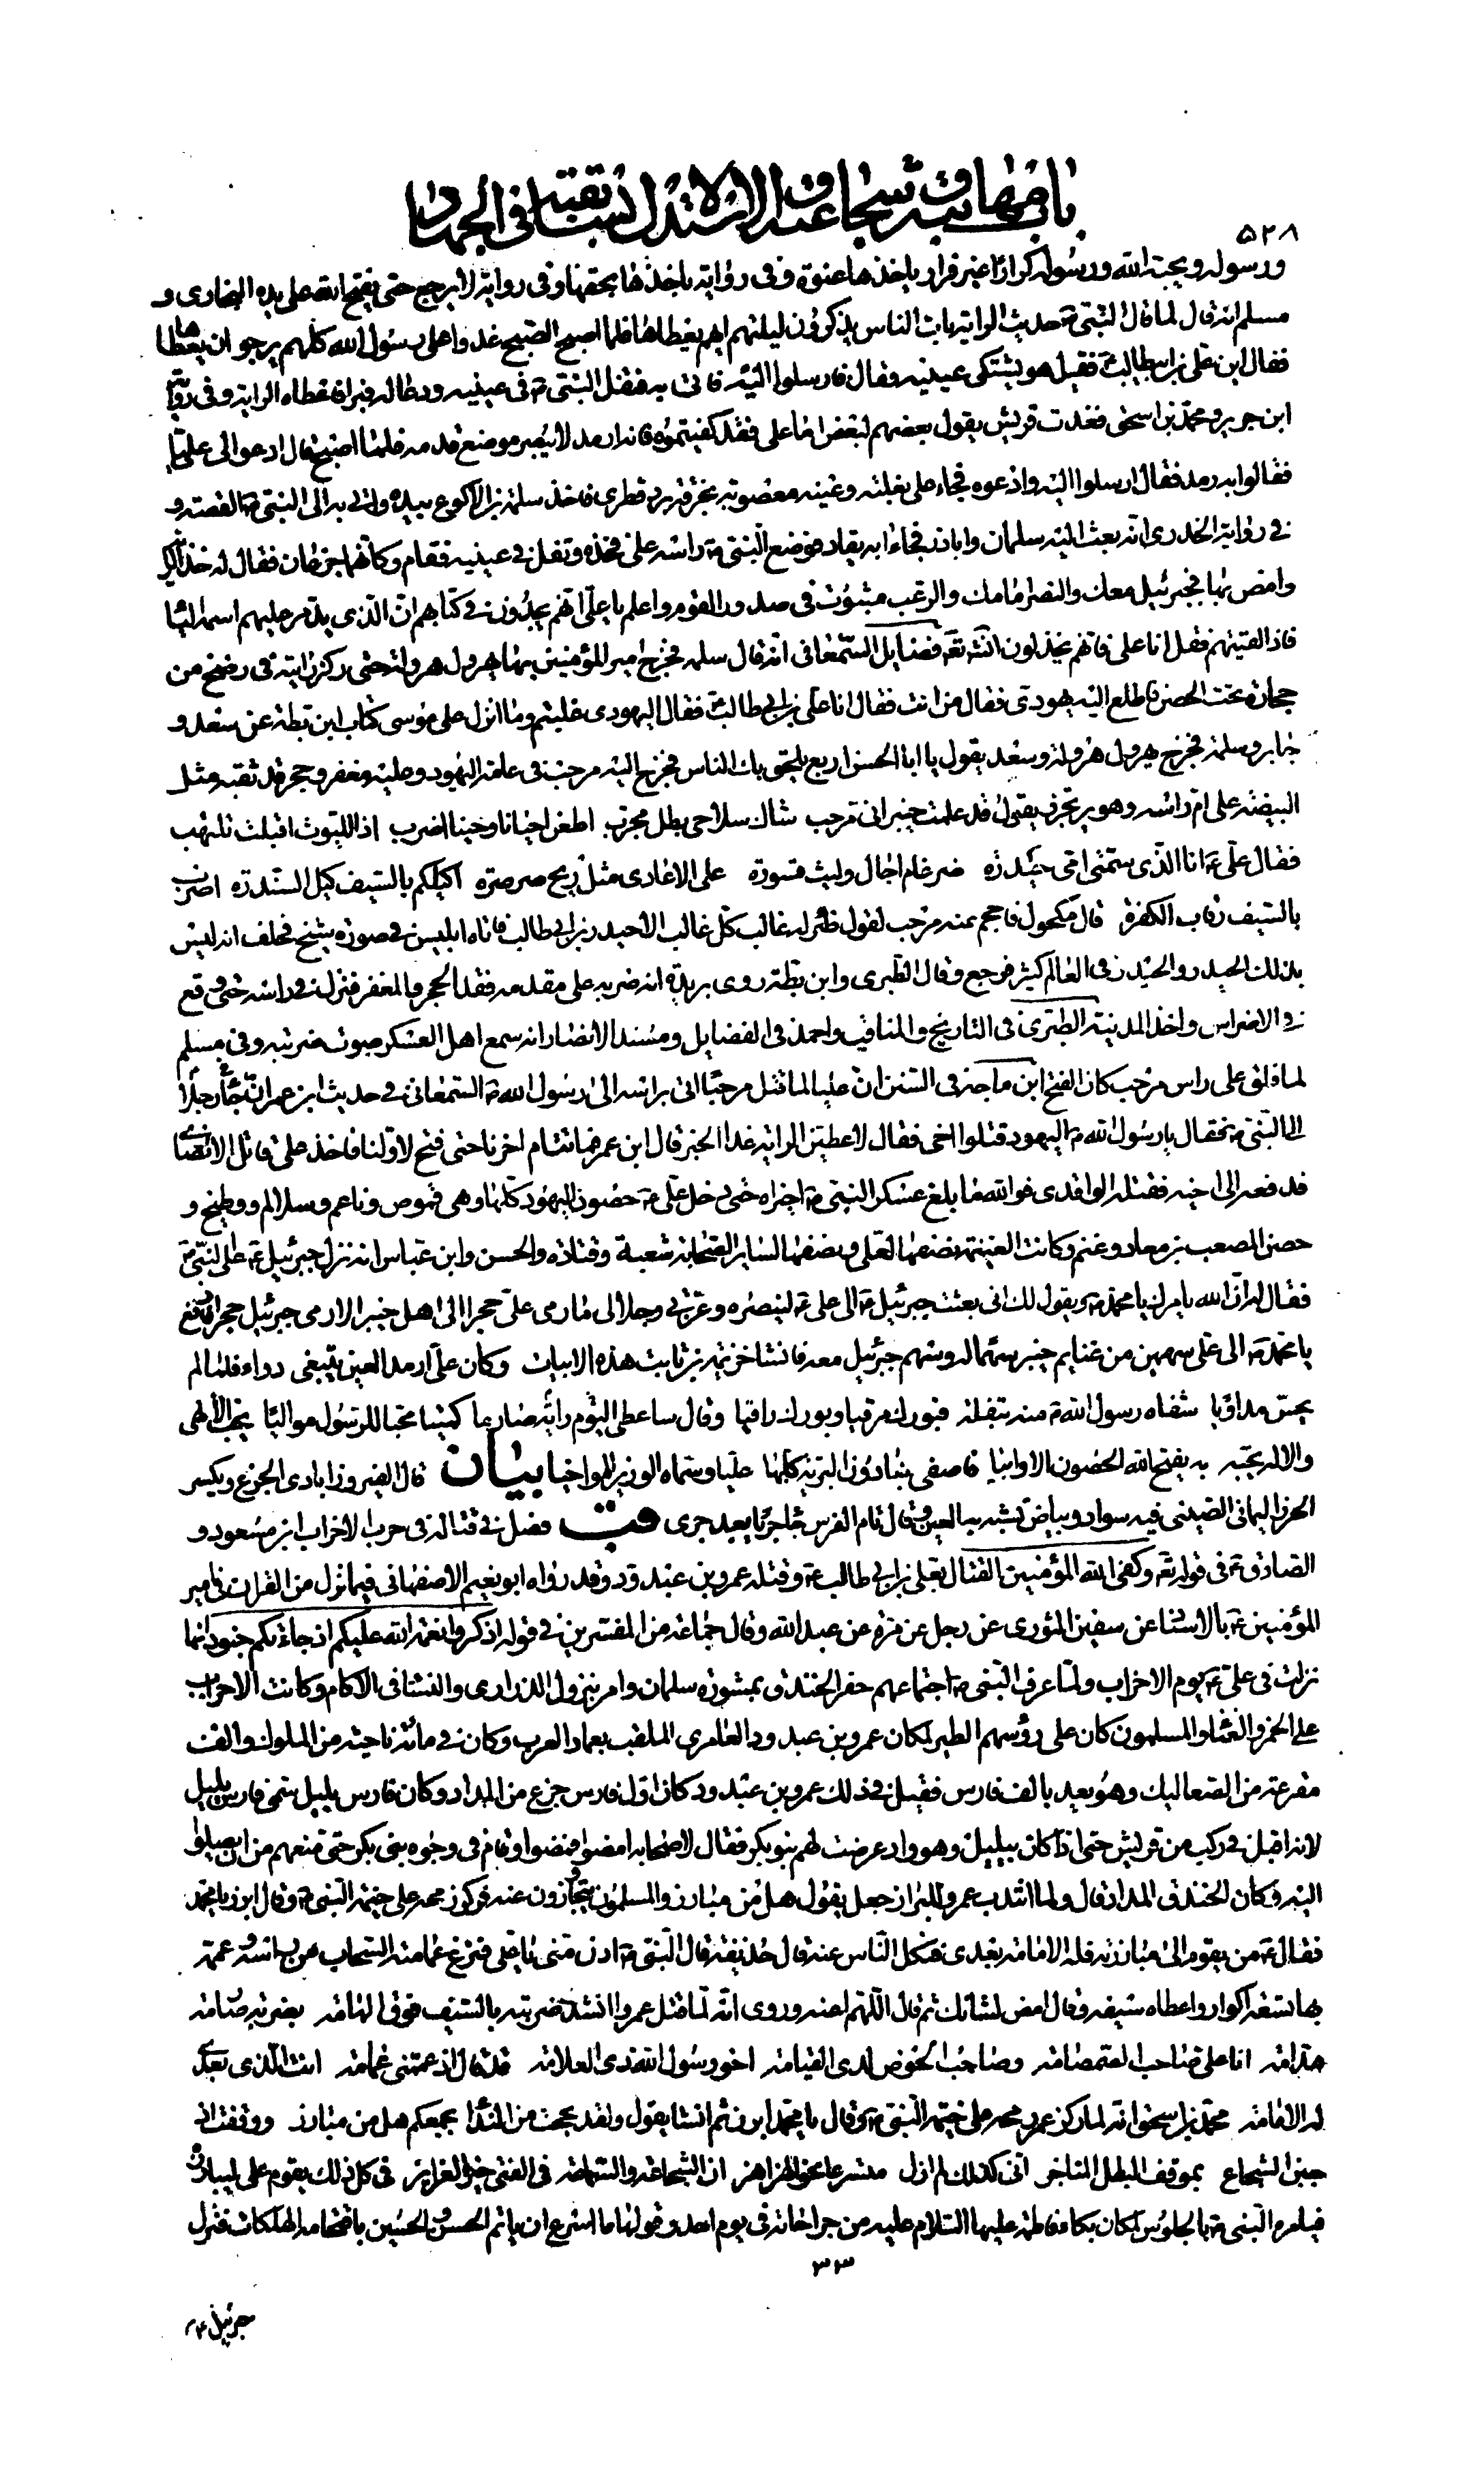 باب مهابته وشجاعته والاستدلال بسابقته فى الجهاد
٥٢٨
ورسوله ويحبه الله ورسوله كرارا غير فرار ياخذها عنوة وفى رواية ياخذها بحقها وفى رواية لا يرجع حتى يفتح الله على يده البخارى و
مسلم انه قال لما قال النبى ص حديث الراية بات الناس يذكرون ليلتهم ايهم يعطاها فلما اصبح الصبح غدوا على رسول الله كلهم يرجو ان يعطاها
فقال اين على بن ابيطالب ع فقيل هو يشتكى عينيه فقال فارسلوا اليه فاتى به فتفل النبى ص فى عينيه ودعا له فبرأ فاعطاه الراية وفى رواية
ابن جرير ومحمد بن اسحق فغدت قريش يقول بعضهم لبعض اما على فقد كفيتموه فانه ارمد لا يبصر موضع قدمه فلما اصبح قال ادعوا الى عليا
فقالوا به رمد فقال ارسلوا اليه وادعوه فجاء على بغلته وعينه معصوبة بخرقة برد قطرى فاخذ سلمة بن الاكوع بيده واتى به الى النبى ص القصة و
فى رواية الخدرى انه بعث اليه سلمان واباذر فجاءا به يقاد فوضع النبى ص راسه على فخذه وتفل فى عينيه فقام وكانهما جزعان فقال له خذ الراية
وامض بها فجبرئيل معك والنصر امامك والرعب مبثوث فى صدور القوم واعلم يا على انهم يجدون فى كتابهم ان الذى يدمر عليهم اسمه اليا
فاذا لقيتهم فقل انا على فانهم يخذلون انشاء الله تع فضايل السمعانى انه قال سلمة فخرج امير المؤمنين بها يهرول هرولة حتى ركز رايته فى رضخ من
حجارة تحت الحصن فاطلع اليه يهودى فقال من انت فقال انا على بن ابى طالب فقال اليهودى غلبتم وما انزل على موسى كتاب ابن بطة عن سعد و
جابر وسلمة فخرج يهرول هرولة وسعد يقول يا ابا الحسن اربع يلحق بك الناس فخرج اليه مرحب فى عامة اليهود وعليه مغفر وحجر قد ثقبه مثل
البيضة على ام راسه وهو يرتجز ويقول قد علمت خيبر انى مرحب شاك سلاحى بطل مجرب اطعن احيانا وحينا اضرب اذا الليوث اقبلت تلتهب
فقال على ع انا الذى سمتنى امى حيدره ضرغام اجام وليث قسورة على الاعادى مثل ريح صرصره اكيلكم بالسيف كيل السندره اضرب
بالسيف رقاب الكفرة قال مكحول فاحجم عنه مرحب لقول ظئر له غالب كل غالب الا حيدر بن ابى طالب فاتاه ابليس فى صورة شيخ فحلف انه ليس
بذلك الحيدر والحيدر فى العالم كثير فرجع وقال الطبرى وابن بطة روى بريدة انه ضربه على مقدمه فقد الحجر والمغفر فنزل فى راسه حتى وقع
فى الاضراس واخذ المدينة الطبرى فى التاريخ والمناقب واحمد فى الفضايل ومسند الانصار انه سمع اهل العسكر صوت ضربته وفى مسلم
لما فلق على راس مرحب كان الفتح ابن ماجة فى السنن ان عليا لما قتل مرحبا اتى براسه الى رسول الله ص السمعانى فى حديث ابن عمر ان رجلا جاء
الى النبى ص فقال يا رسول الله ص اليهود قتلوا اخى فقال لاعطين الراية غدا الخبر قال ابن عمر فما تتام اخرنا حتى فتح لاولنا فاخذ على قاتل الانصارى
فدفعه الى اخيه فقتله الواقدى فو الله ما بلغ عسكر النبى ص اخراه حتى دخل على ع حصون اليهود كلها وهى قموص وناعم وسلالم ووطيح و
حصن المصعب بن معاد وغنم وكانت الغنيمة نصفها لعلى ونصفها لساير الصحابة شعبة وقتاده والحسن وابن عباس انه نزل جبرئيل ع على النبى ص
فقال له ان الله يامرك يا محمد ص ويقول لك انى بعثت جبرئيل ع الى على ع لينصره وعزتى وجلالى ما رمى على حجرا الى اهل خيبر الا رمى جبرئيل حجرا فادفع
يا محمد ص الى على سهمين من غنايم خيبر سهما له وسهم جبرئيل معه فانشا خزيمة بن ثابت هذه الابيات وكان على ارمد العين يبتغى دواء فلما لم
يحس مداويا شفاه رسول الله ص منه بتفلة فبورك مرقيا وبورك راقيا وقال ساعطى اليوم راية صارما كميتا محبا للرسول مواليا يحب الالهى
والاله يحبه به يفتح الله الحصون الاوابيا فاصفى بها دون البرية كلها عليا وسماه الوزير المواخيا بيان قال الفيروزابادى الجزع ويكسر
الخرز اليمانى الصينى فيه سواد وبياض تشبه به العين وقال تام الفرس جا جريا بعد جرى قب فصل فى قتاله فى حرب الاحزاب ابن مسعود و
الصادق ع فى قوله تع وكفى الله المؤمنين القتال بعلى بن ابى طالب ع وقتله عمرو بن عبد ود وقد رواه ابو نعيم الاصفهانى فيما نزل من القران فى امير
المؤمنين ع بالاسناد عن سفين الثورى عن رجل عن مرة عن عبد الله وقال جماعة من المفسرين فى قوله اذكروا نعمة الله عليكم اذ جاءتكم جنود انها
نزلت فى على ع يوم الاحزاب ولما عرف النبى ص اجتماعهم حفر الخندق بمشورة سلمان وامر بنزول الذرارى والنساء فى الاكام وكانت الاحزاب
على الخمر والغناء والمسلمون كان على رؤسهم الطير لمكان عمرو بن عبد ود العامرى الملقب بعماد العرب وكان فى مائة ناحية من الملوك والف
مفرعة من الصعاليك وهو يعد بالف فارس فقيل فى ذلك عمرو بن عبد ود كان اول فارس جزع من المداد وكان فارس يليل سمى فارس يليل
لانه اقبل فى ركب من قريش حتى اذا كان بيليل وهو واد عرضت لهم بنو بكر فقال لاصحابه امضوا فمضوا وقام فى وجوه بنى بكر حتى منعهم من ان يصلوا
اليه وكان الخندق المداد قال ولما انتدب عمرو للبراز جعل يقول هل من مبارز والمسلمون يتجاوزون عنه فركز رمحه على خيمة النبى ص وقال ابرز يا محمد
فقال ع من يقوم الى مبارزته فله الامامة بعدى فنكل الناس عنه قال حذيفة قال النبى ص ادن منى يا على فنزع عمامته السحاب من راسه وعممه
بها تسعة اكوار واعطاه سيفه وقال امض لشانك ثم قال اللهم اعنه وروى انه لما قتل عمروا انشد ضربته بالسيف فوق الهامة بضربة صارمة
هدامة انا على صاحب الصمصامة وصاحب الحوض لدى القيامة اخو رسول الله ذى العلامة قد قال اذ عممنى عمامة انت الذى بعدى
له الامامة محمد بن اسحق انه لما ركز عمرو رمحه على خيمة النبى ص وقال يا محمد ابرز ثم انشا يقول ولقد بححت من النداء بجمعكم هل من مبارز ووقفت اذ
جبن الشجاع بموقف البطل المناجز انى كذلك لم ازل متسرعا نحو الهزاهز ان الشجاعة والسماحة فى الفتى خير الغرايز فى كل ذلك يقوم على ليبارزه
فيامره النبى ص بالجلوس لمكان بكاء فاطمة عليها السلام عليه من جراحاته فى يوم احد وقولها ما اسرع ان ياتم الحسن والحسين باقتحامه الهلكات فنزل
٣٣
جبرئيل ع